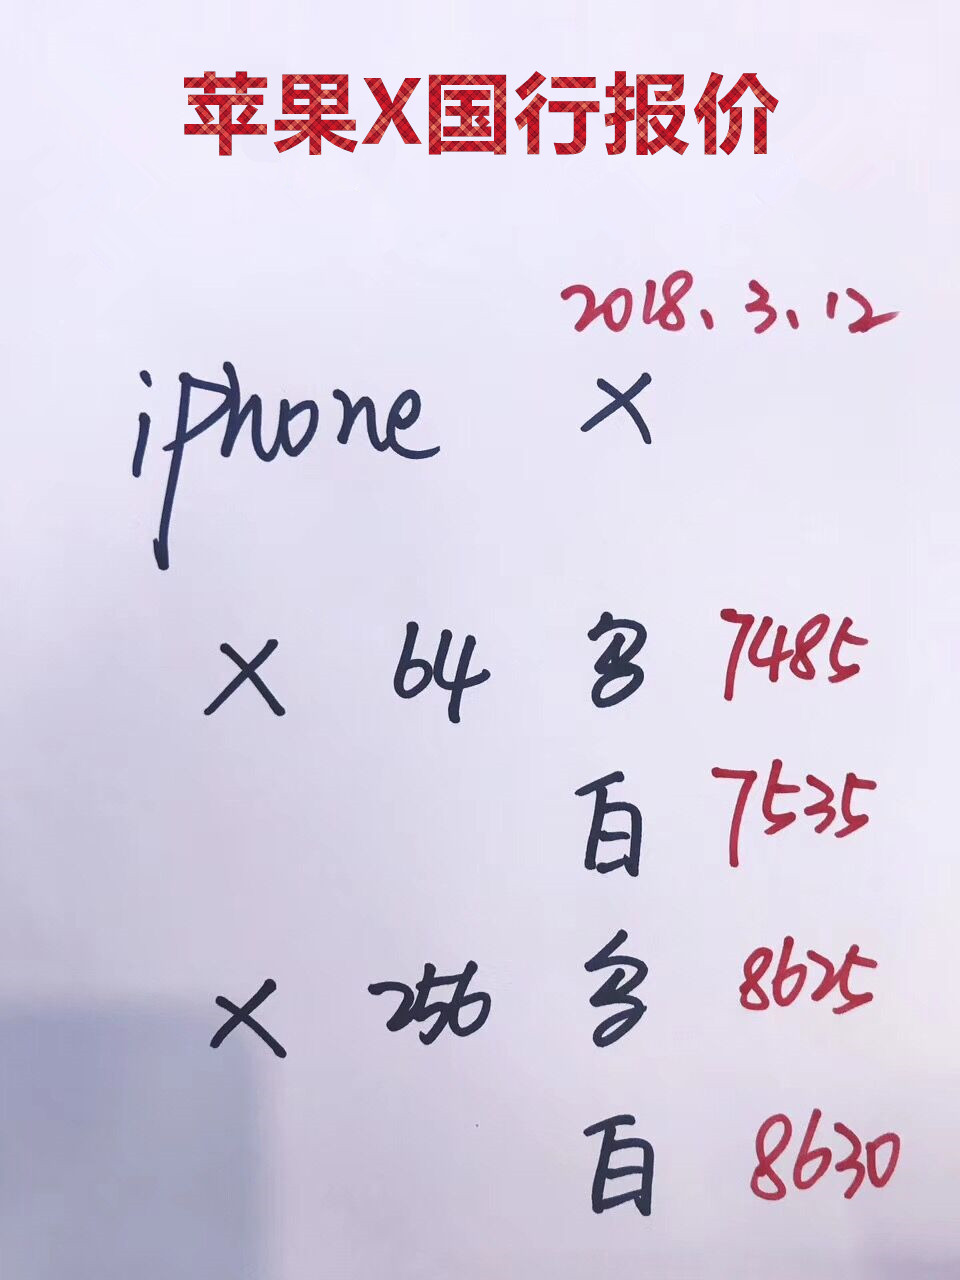 苹果X国行报价
2018、3、12
iphone X
X 64 7485
百 7535
X 256 8625
百 8630